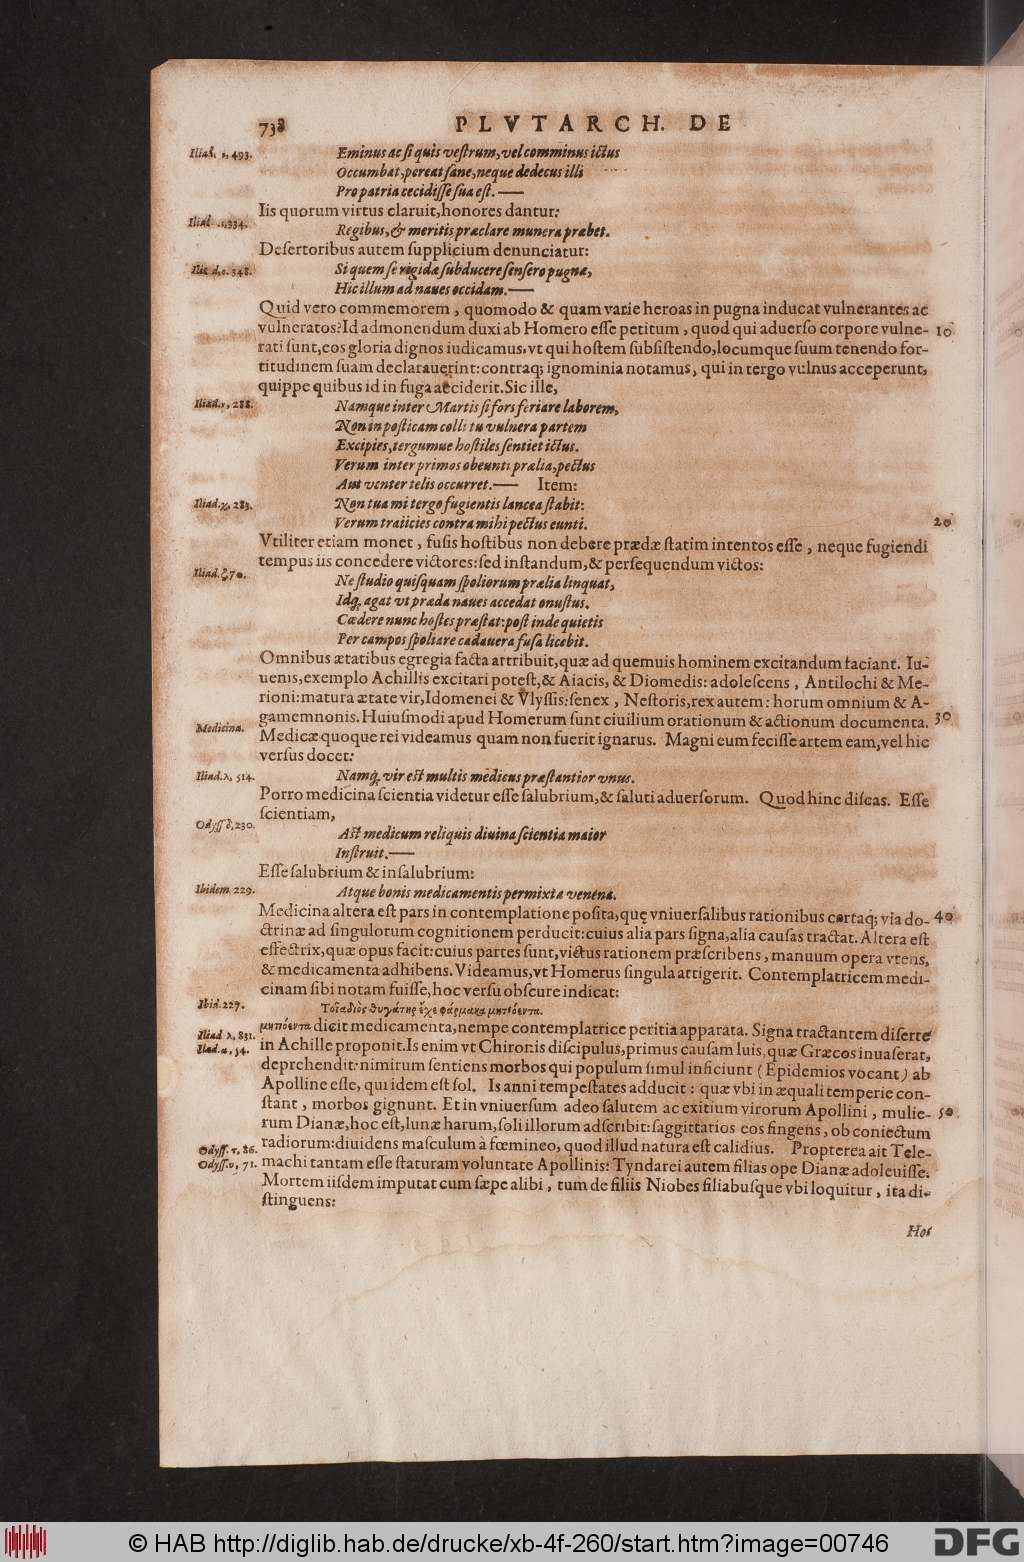 738 PLVTARCH. DE
Iliad. ι, 493. Eminus ac si quis vestrum, vel comminus ictus
Occumbat, pereat sane, neque dedecus illi
Pro patria cecidisse sua est. ——
Iis quorum virtus claruit, honores dantur:
Iliad 334. Regibus, & meritis præclare munera præbet.
Desertoribus autem supplicium denunciatur:
348. Si quem se rigidæ subducere sensero pugnæ,
Hic illum ad naues occidam. ——
Quid vero commemorem, quomodo & quam varie heroas in pugna inducat vulnerantes ac
vulneratos? Id admonendum duxi ab Homero esse petitum, quod qui aduerso corpore vulne- 10
rati sunt, eos gloria dignos iudicamus, vt qui hostem subsistendo, locumque suum tenendo for-
titudinem suam declarauerint: contraq; ignominia notamus, qui in tergo vulnus acceperunt,
quippe quibus id in fuga acciderit. Sic ille,
Iliad. ν, 288. Namque inter Martis si fors feriare laborem,
Non in posticam colli tu vulnera partem
Excipies, tergumue hostiles sentiet ictus.
Verum inter primos obeunti prælia, pectus
Aut venter telis occurret. —— Item:
Iliad. χ, 283. Non tua mi tergo fugientis lancea stabit:
Verum traiicies contra mihi pectus eunti. 20
Vtiliter etiam monet, fusis hostibus non debere prædæ statim intentos esse, neque fugiendi
tempus iis concedere victores: sed instandum, & persequendum victos:
Iliad. ζ, 70. Ne studio quisquam spoliorum prælia linquat,
Idq; agat vt præda naues accedat onustus.
Cædere nunc hostes præstat: post inde quietis
Per campos spoliare cadauera fusa licebit.
Omnibus ætatibus egregia facta attribuit, quæ ad quemuis hominem excitandum faciant. Iu-
uenis, exemplo Achillis excitari potest, & Aiacis, & Diomedis: adolescens, Antilochi & Me-
rioni: matura ætate vir, Idomenei & Vlyssis: senex, Nestoris, rex autem: horum omnium & A-
gamemnonis. Huiusmodi apud Homerum sunt ciuilium orationum & actionum documenta. 30
Medicina. Medicæ quoque rei videamus quam non fuerit ignarus. Magni eum fecisse artem eam, vel hic
versus docet:
Iliad. λ, 514. Namq; vir est multis medicus præstantior vnus.
Porro medicina scientia videtur esse salubrium, & saluti aduersorum. Quod hinc discas. Esse
scientiam,
Odyss. δ, 230. Ast medicum reliquis diuina scientia maior
Instruit. ——
Esse salubrium & insalubrium:
Ibidem 229. Atque bonis medicamentis permixta venena.
Medicina altera est pars in contemplatione posita, quę vniuersalibus rationibus certaq; via do- 40
ctrinæ ad singulorum cognitionem perducit: cuius alia pars signa, alia causas tractat. Altera est
effectrix, quæ opus facit: cuius partes sunt, victus rationem præscribens, manuum opera vtens,
& medicamenta adhibens. Videamus, vt Homerus singula attigerit. Contemplatricem medi-
cinam sibi notam fuisse, hoc versu obscure indicat:
Ibid. 227. Τοῖα Διὸς θυγάτηρ ἔχε φάρμακα μητιόεντα.
μητιόεντα dicit medicamenta, nempe contemplatrice peritia apparata. Signa tractantem diserte
Iliad λ, 831. in Achille proponit. Is enim vt Chironis discipulus, primus causam luis, quæ Græcos inuaserat,
Iliad. α, 54. deprehendit: nimirum sentiens morbos qui populum simul inficiunt (Epidemios vocant) ab
Apolline esse, qui idem est sol. Is anni tempestates adducit: quæ vbi in æquali temperie con-
stant, morbos gignunt. Et in vniuersum adeo salutem ac exitium virorum Apollini, mulie- 50
rum Dianæ, hoc est, lunæ harum, soli illorum adscribit: saggittarios eos fingens, ob coniectum
radiorum: diuidens masculum à fœmineo, quod illud natura est calidius. Propterea ait Tele-
Odyss. τ, 86. machi tantam esse staturam voluntate Apollinis: Tyndarei autem filias ope Dianæ adoleuisse.
Odyss. υ, 71. Mortem iisdem imputat cum sæpe alibi, tum de filiis Niobes filiabusque vbi loquitur, ita di-
stinguens:
Hos
© HAB http://diglib.hab.de/drucke/xb-4f-260/start.htm?image=00746
DFG